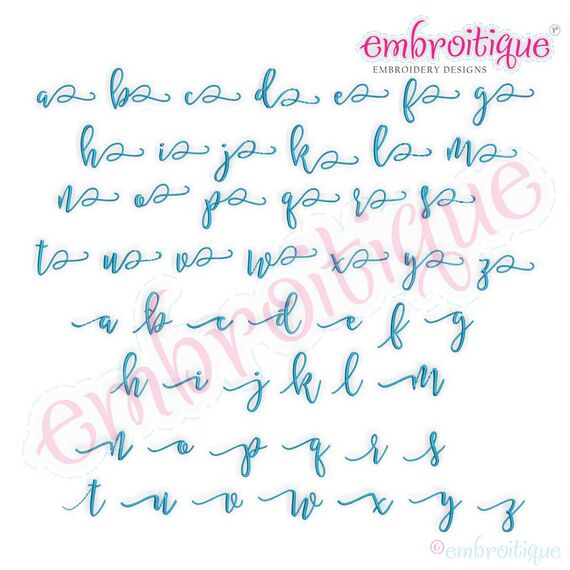 embroitique
EMBROIDERY DESIGNS
a b c d e f g
h i j k l m
n o p q r s
t u v w x y z
a b c d e f g
h i j k l m
n o p q r s
t u v w x y z
embroitique
© embroitique